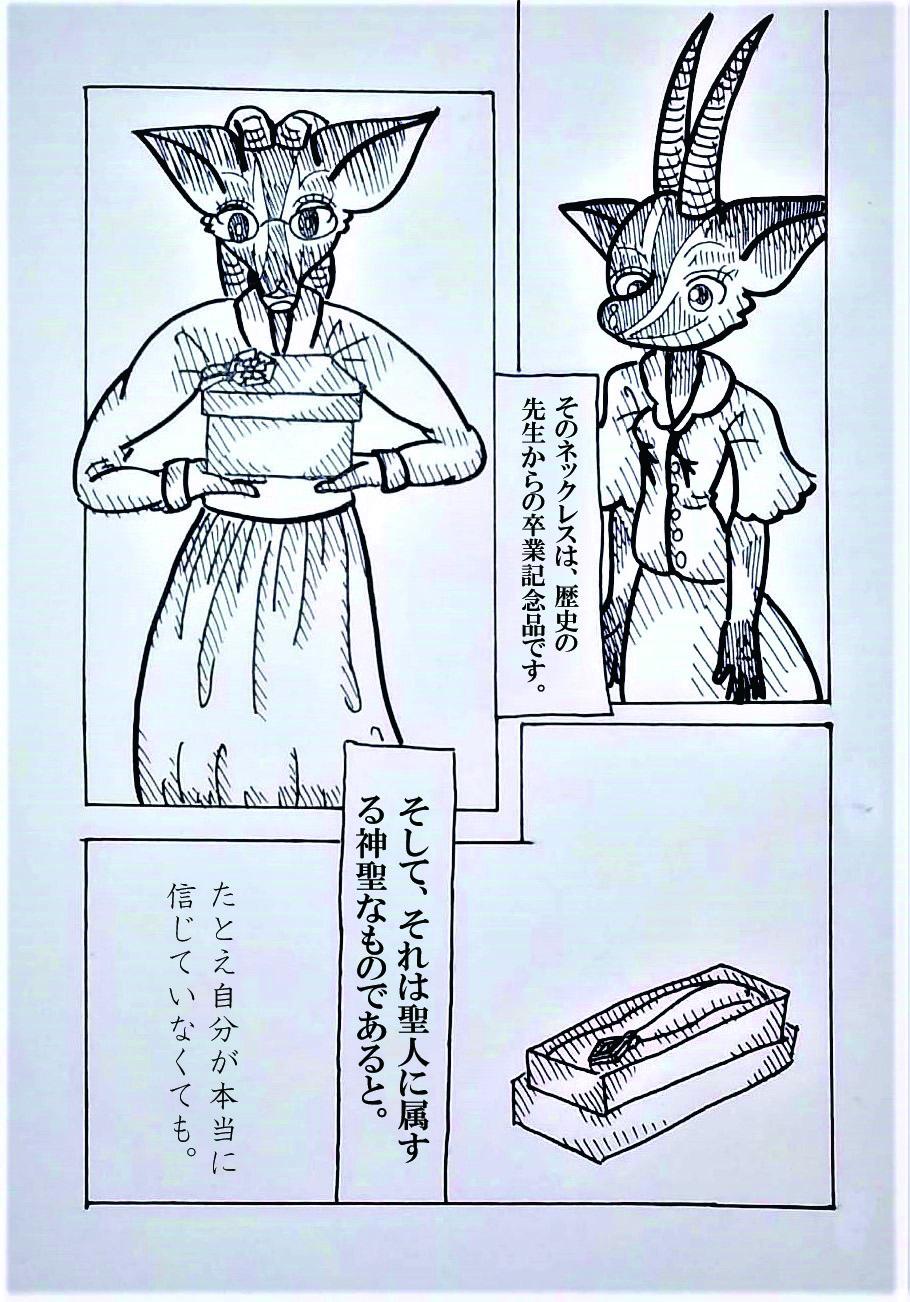 そのネックレスは、歴史の
先生からの卒業記念品です。
そして、それは聖人に属す
る神聖なものであると。
たとえ自分が本当に
信じていなくても。